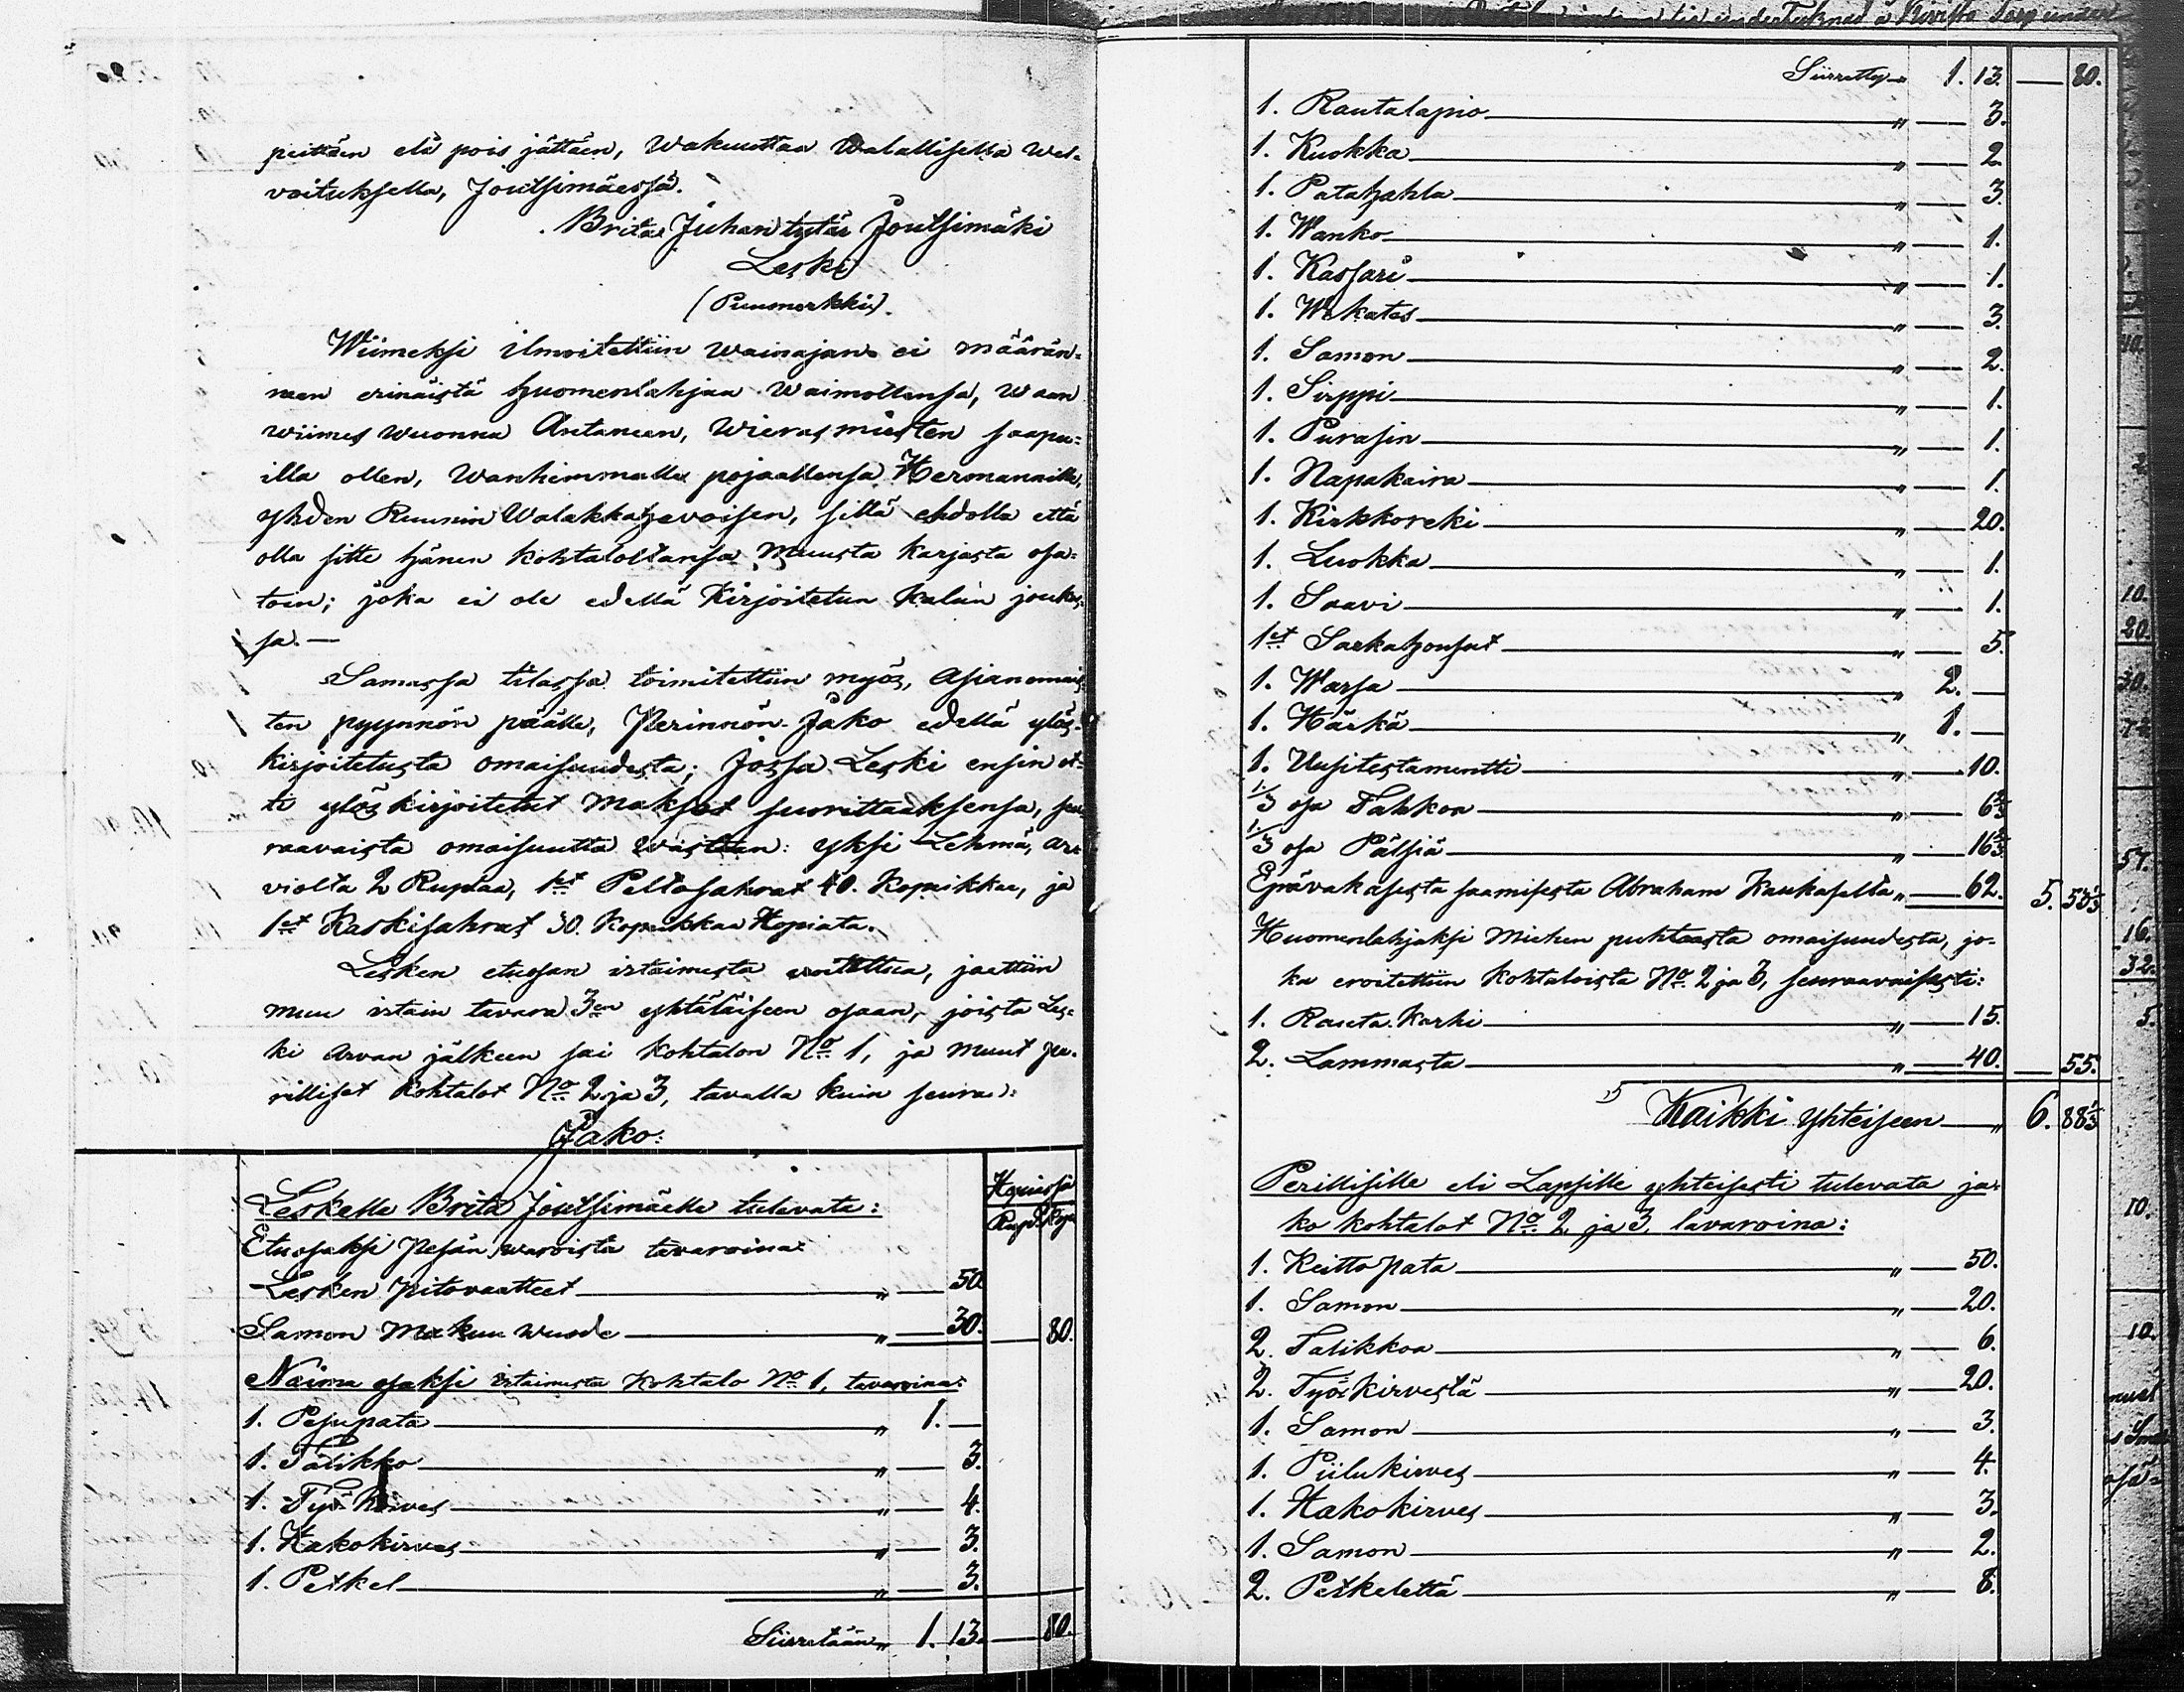 peittäen eli pois jättäen, wakuuttaa Walallisella Wel-
voituksella, Joutsimäessä.
Brita Juhan tytär Joutsimäki
Leski
(Puumerkki).
Wiimeksi ilmoitettiin wainajan ei määrän-
neen erinäistä huomenlahjaa Waimollensa, Waan
wiimes wuonna Antaneen, Wierasmiesten saapu-
illa ollen, Wanhimmalle pojaallensa Hermannille,
yhden Ruunin Walakkahevoisen, sillä ehdolla että
olla sitte hänen kohtaloltansa muusta karjasta osa-
toin; joka ei ole edellä Kirjoitetun kaluin joukos-
sa. —
Samassa tilassa toimitettiin myös, Asianomais-
ten pyynnön päälle, Perinnön-Jako edellä ylös-
kirjoitetusta omaisuudesta; Jossa Leski ensin ot-
ti ylöskirjoitetut Maksot suorittaaksensa, seu-
raavaista omaisuutta wastaan: yksi Lehmä, ar-
violta 2 Ruplaa, 1et Peltosahrat 40. Kopeikkaa, ja
1et Kaskisahrat 30. Kopeikkaa Hopiata.
Lesken etuosan irtaimesta eroitettua, jaettiin
muu irtain tavara 3en yhtäläiseen osaan, joista Les-
ki Arvan jälkeen sai kohtalon No 1, ja muut pe-
rilliset kohtalot No 2 ja 3, tavalla kuin seuraa:
Jako:
Hopiassa
Leskelle Brita Joutsimäelle tulevata: Rupl. Kop.
Etuosaksi Pesän waroista tavaroina:
Lesken pitovaatteet " — 50.
Samon Makuu wuode " — 30. — 80.
Naima osaksi irtaimesta Kohtalo No 1, tavaroina:
1. Pesupata " 1. —
1. Talikko 3.
1. Työ Kirves 4.
1. Hakokirves " — 3.
1. Petkel " — 3.
Siirretään " 1. 13. — 80.
Siirretty " 1. 13. — 80.
1. Rautalapio " — 3.
1. Kuokka " — 2.
1. Patahahla " — 3.
1. Wanko " — 1.
1. Kassari " — 1.
1. Wikates " — 3.
1. Samon " — 2.
1. Sirppi " — 1.
1. Purasin " — 1.
1. Napakaira " — 1.
1. Kirkkoreki " — 20.
1. Luokka " — 1.
1. Saavi " — 1.
1et Sarkahousut " — 5.
1. Warsa " 2. —
1. Härkä " 1. —
1. Uusitestamentti " — 10.
1/3 osa Tahkoa " — 6 2/3
1/3 osa Pälsiä " — 16 2/3
Epävakasesta saamisesta Abraham Kaukaselta " — 62. 5. 53 1/3
Huomenlahjaksi Miehen puhtaasta omaisuudesta, jo-
ka eroitettiin kohtaloista No 2 ja 3, seuraavaisesti:
1. Rauta Karhi " — 15.
2. Lammasta " — 40. — 55.
Kaikki yhteiseen " 6. 88 1/3
Perillisille eli Lapsille yhteisesti tulevata ja-
ko kohtalot No 2 ja 3. tavaroina:
1. Keitto pata " — 50.
1. Samon " — 20.
2. Talikkoa " — 6.
2. Työ kirvestä " — 20.
1. Samon " — 3.
1. Piilukirves " — 4.
1. Hakokirves " — 3.
1. Samon " — 2.
2. Petkelettä " — 8.